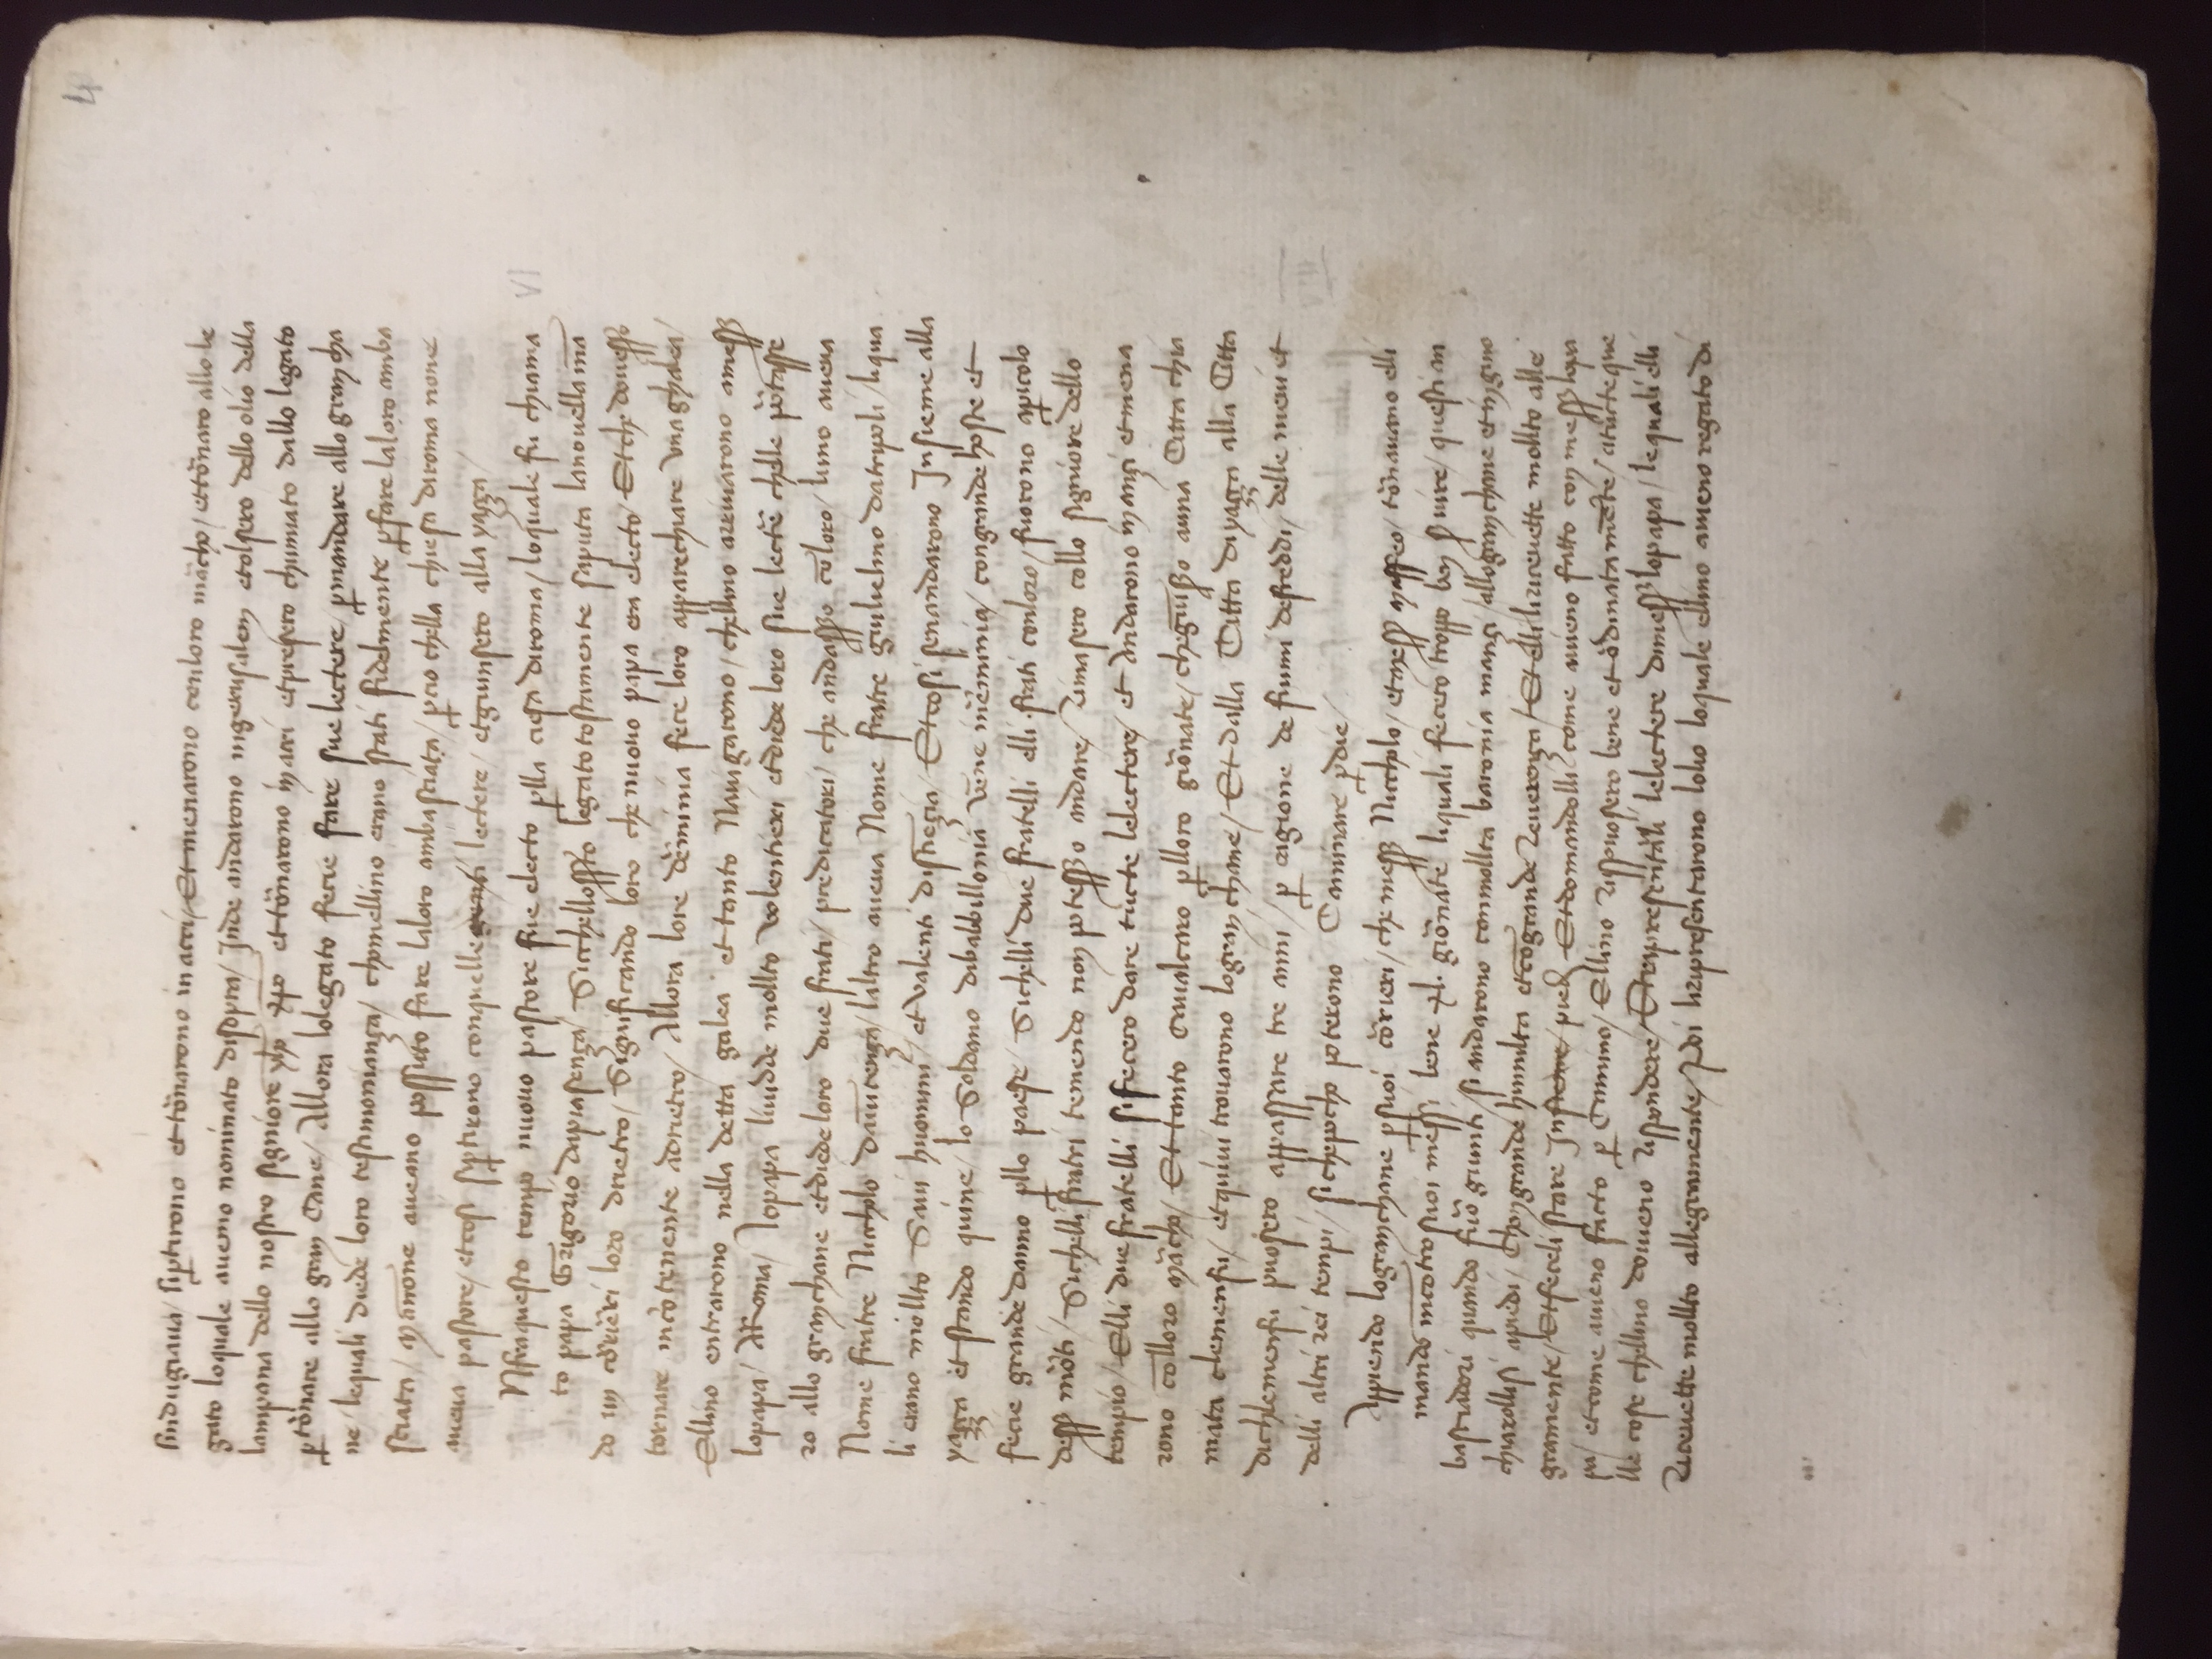 4
sindugiaua / sip̲tirono et to͂narono in acri / Et menarono con loro ma͂cho / et to͂naro allo le
gato loquale auemo nominato disopra / Inde andarono ingerusalem etolsero dello olio della
lampana dello nostro signiore yħu xp̄o et to͂narono in acri et presero chumiato dallo legato
p̲ to͂nare allo gran Cane / Allora lolegato fecie fare sue lectere / p̲ mandare allo gran cha
ne / lequali diede loro testimonianza / chomellino erano stati fidelmente p̲ fare laloro amba
sciata / ma none aueano possuto fare laloro ambasciata / p̲cio chella chiesa diroma none
aueua pastore / et cosi sip̲tirono conquelle genti lectere / et giunsero alla yazza /
Nfraquesto tempo nuouo pastore fue electo p̲lla ciesa diroma / loquale fu chiama
VI
to papa Grigorio dapiasenza / Sicchellosto legato tostamente saputa lanouella ma͂
do un co͂rie͂ri loro drietro / Significando loro che nuouo papa era electo / Et che douess̲o
tornare inco͂tenente adrietro / Allora lore de͂minia fece loro apparechiare una ghalea /
Ellino entrarono nella detta galea et tanto Nauigarono / chellino arriuarono amess̲
lopapa / ARoma / lopapa liuidde mollto volentieri et diede loro sue lecte͂ chelle po͂tasse
ro allo gran chane et diede loro due frati / predicatori / che andass̲o co͂loro / luno aueua
Nome fratre Niccholo dauī̄cenza / laltro aueua Nome fratre guilielmo datripoli / li qua
li erano mollto Saui huomini / et valenti discie͂zia / Et cosi senandarono Insieme alla
yazza et stando quine / lo Soldano dibabbillonia ve͂ne ine͂minia / congrande hoste et
fecie grande danno p̲llo paese / Sichelli due fratelli elli frati conloro / fuorono ap̲icolo
dess̲ mo͂ti / Sichelli fratri temendo non potess̲o andare / Rimasero collo signiore dello
tempio / Elli due fratelli sifecero dare tucte lelectere / et Andarono inanzi et mena
rono co͂lloro ma͂cho / Et tanto Caualcaro p̲lloro gio͂nate / che giu͂s̲o auna Citta chia
mata clemenfu / et quiui trouarono logran chane / Et dalla Citta di yazza alla Citta
dichlemenfu puosero appassare tre anni / p̲ cagione de fiumi defreddi / delle neui et
delli altri rei tempi / si chepocho poterono Caminare p̲ die /
Appiendo logran chane p̲ suoi co͂rieri / che mess̲ Niccholo / et mess̲ maffeo / to͂nauano elli
mando inco͂tro suoi messi bene xl. gio͂nate liquali fecero troppo ben s̲uire / questi an
basciadori quando fuo͂ giunti / si andarono conmollta baronia inanzi / allogran chane et ingino
chiarollisi apiedi / Chon grande humilta et co͂ grande Reuerenza / Et elli liriceuette mollto alle
gramente / Et feceli stare Insieme piedi Et domandolli come aueno fatto con mess̲ lopa
pa / et come aueno facto p̲ Camino / Ellino Rispuosero bene et o͂dinatame͂te / atucte que
lle cose chellino doueno Rispondere / Et rapresenta͂li lelectere dimess̲ lopapa / le quali elli
Riceuette mollto allegramente / Poi lirapresentarono lolio loquale ellino aueno regato di